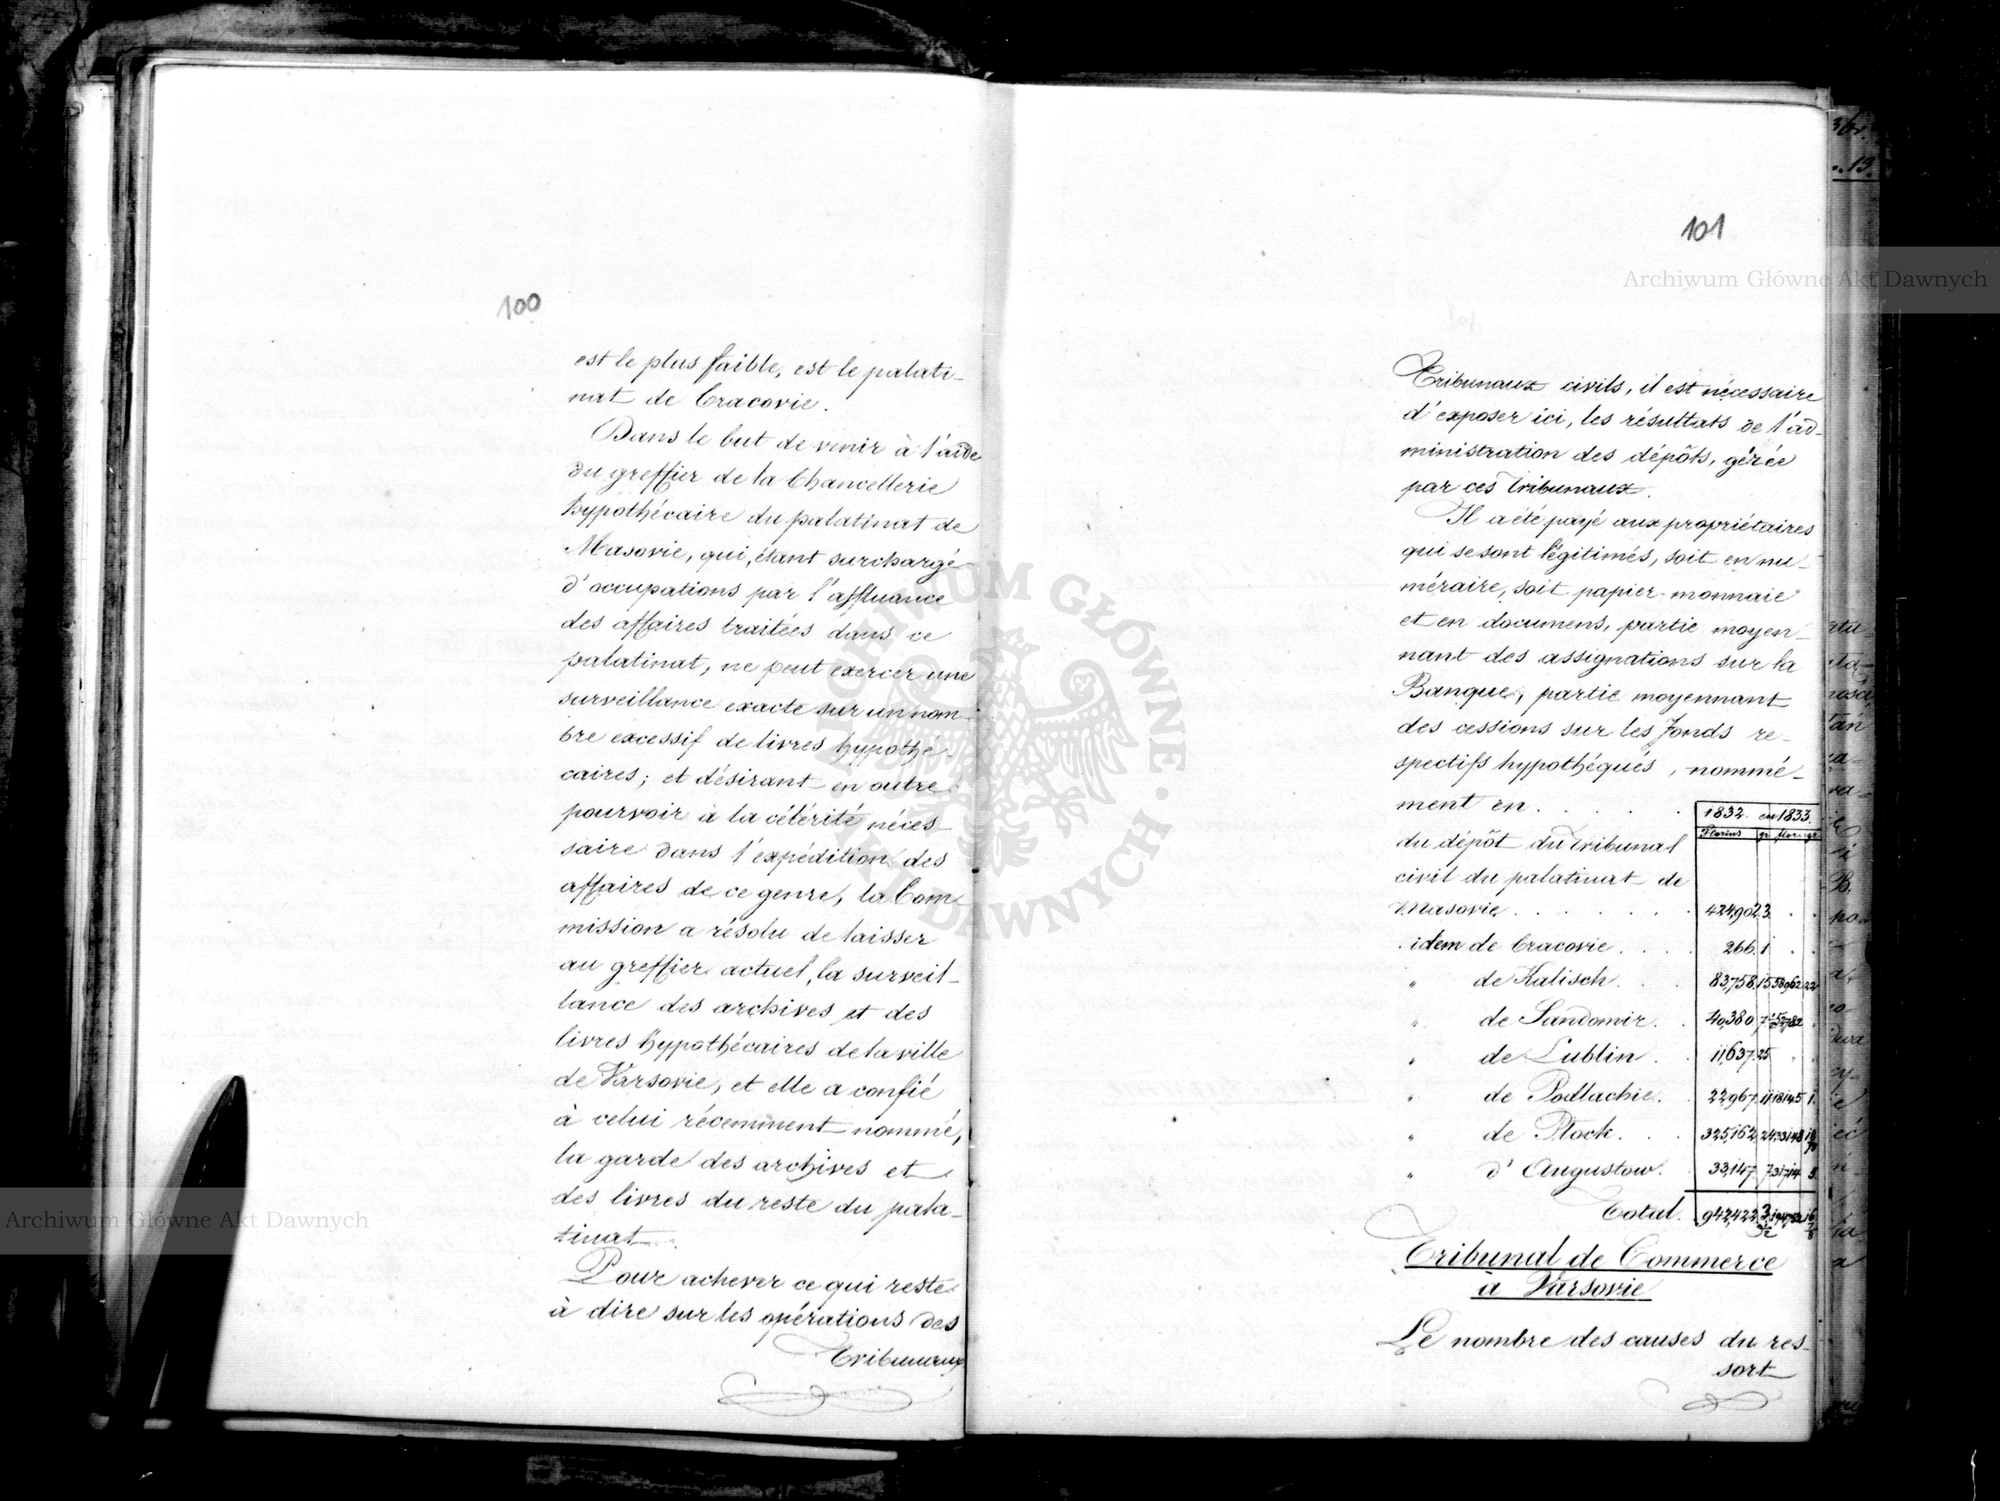 100
est le plus faible, est le palati-
nat de Cracovie.
Dans le but de venir à l'aide
du greffier de la Chancellerie
hypothécaire du palatinat de
Masovie, qui, étant surchargé
d'occupations par l'affluance
des affaires traitées dans ce
palatinat, ne peut exercer une
surveillance exacte sur un nom-
bre excessif de livres hypothé-
caires; et désirant en outre
pourvoir à la célérité néces-
saire dans l'expédition des
affaires de ce genre, la Com-
mission a résolu de laisser
au greffier actuel, la surveil-
lance des archives et des
livres hypothécaires de la ville
de Varsovie, et elle a confié
à celui récemment nommé,
la garde des archives et
des livres du reste du pala-
tinat.
Pour achever ce qui reste
à dire sur les opérations des
Tribunaux
101
Tribunaux civils, il est nécessaire
d'exposer ici, les résultats de l'ad-
ministration des dépôts, gérée
par ces tribunaux.
Il a été payé aux propriétaires
qui se sont légitimés, soit en nu-
méraire, soit papier-monnaie
et en documens, partie moyen-
nant des assignations sur la
Banque, partie moyennant
des cessions sur les fonds re-
spectifs hypothéqués, nommé-
ment en . . . . . 1832. en 1833.
Florins gr. flor. gr.
du dépôt du tribunal
civil du palatinat de
Masovie . . . . . . . 424,902 3. . .
idem de Cracovie . . . . 266. 1 . .
" de Kalisch . . . 83,758. 15 58,962 22
" de Sandomir. . 40,380 7
" de Lublin . . 11,637. 25 . .
" de Podlachie. . 22,967. 11 18,145 1.
" de Plock. . . 325,162. 24
" d'Augustow. . 33,147. 7 31,714 5.
Total. 942,422. 3
Tribunal de Commerce
à Varsovie
Le nombre des causes du res-
sort
Archiwum Główne Akt Dawnych
Archiwum Główne Akt Dawnych
ARCHIWUM GŁÓWNE AKT DAWNYCH